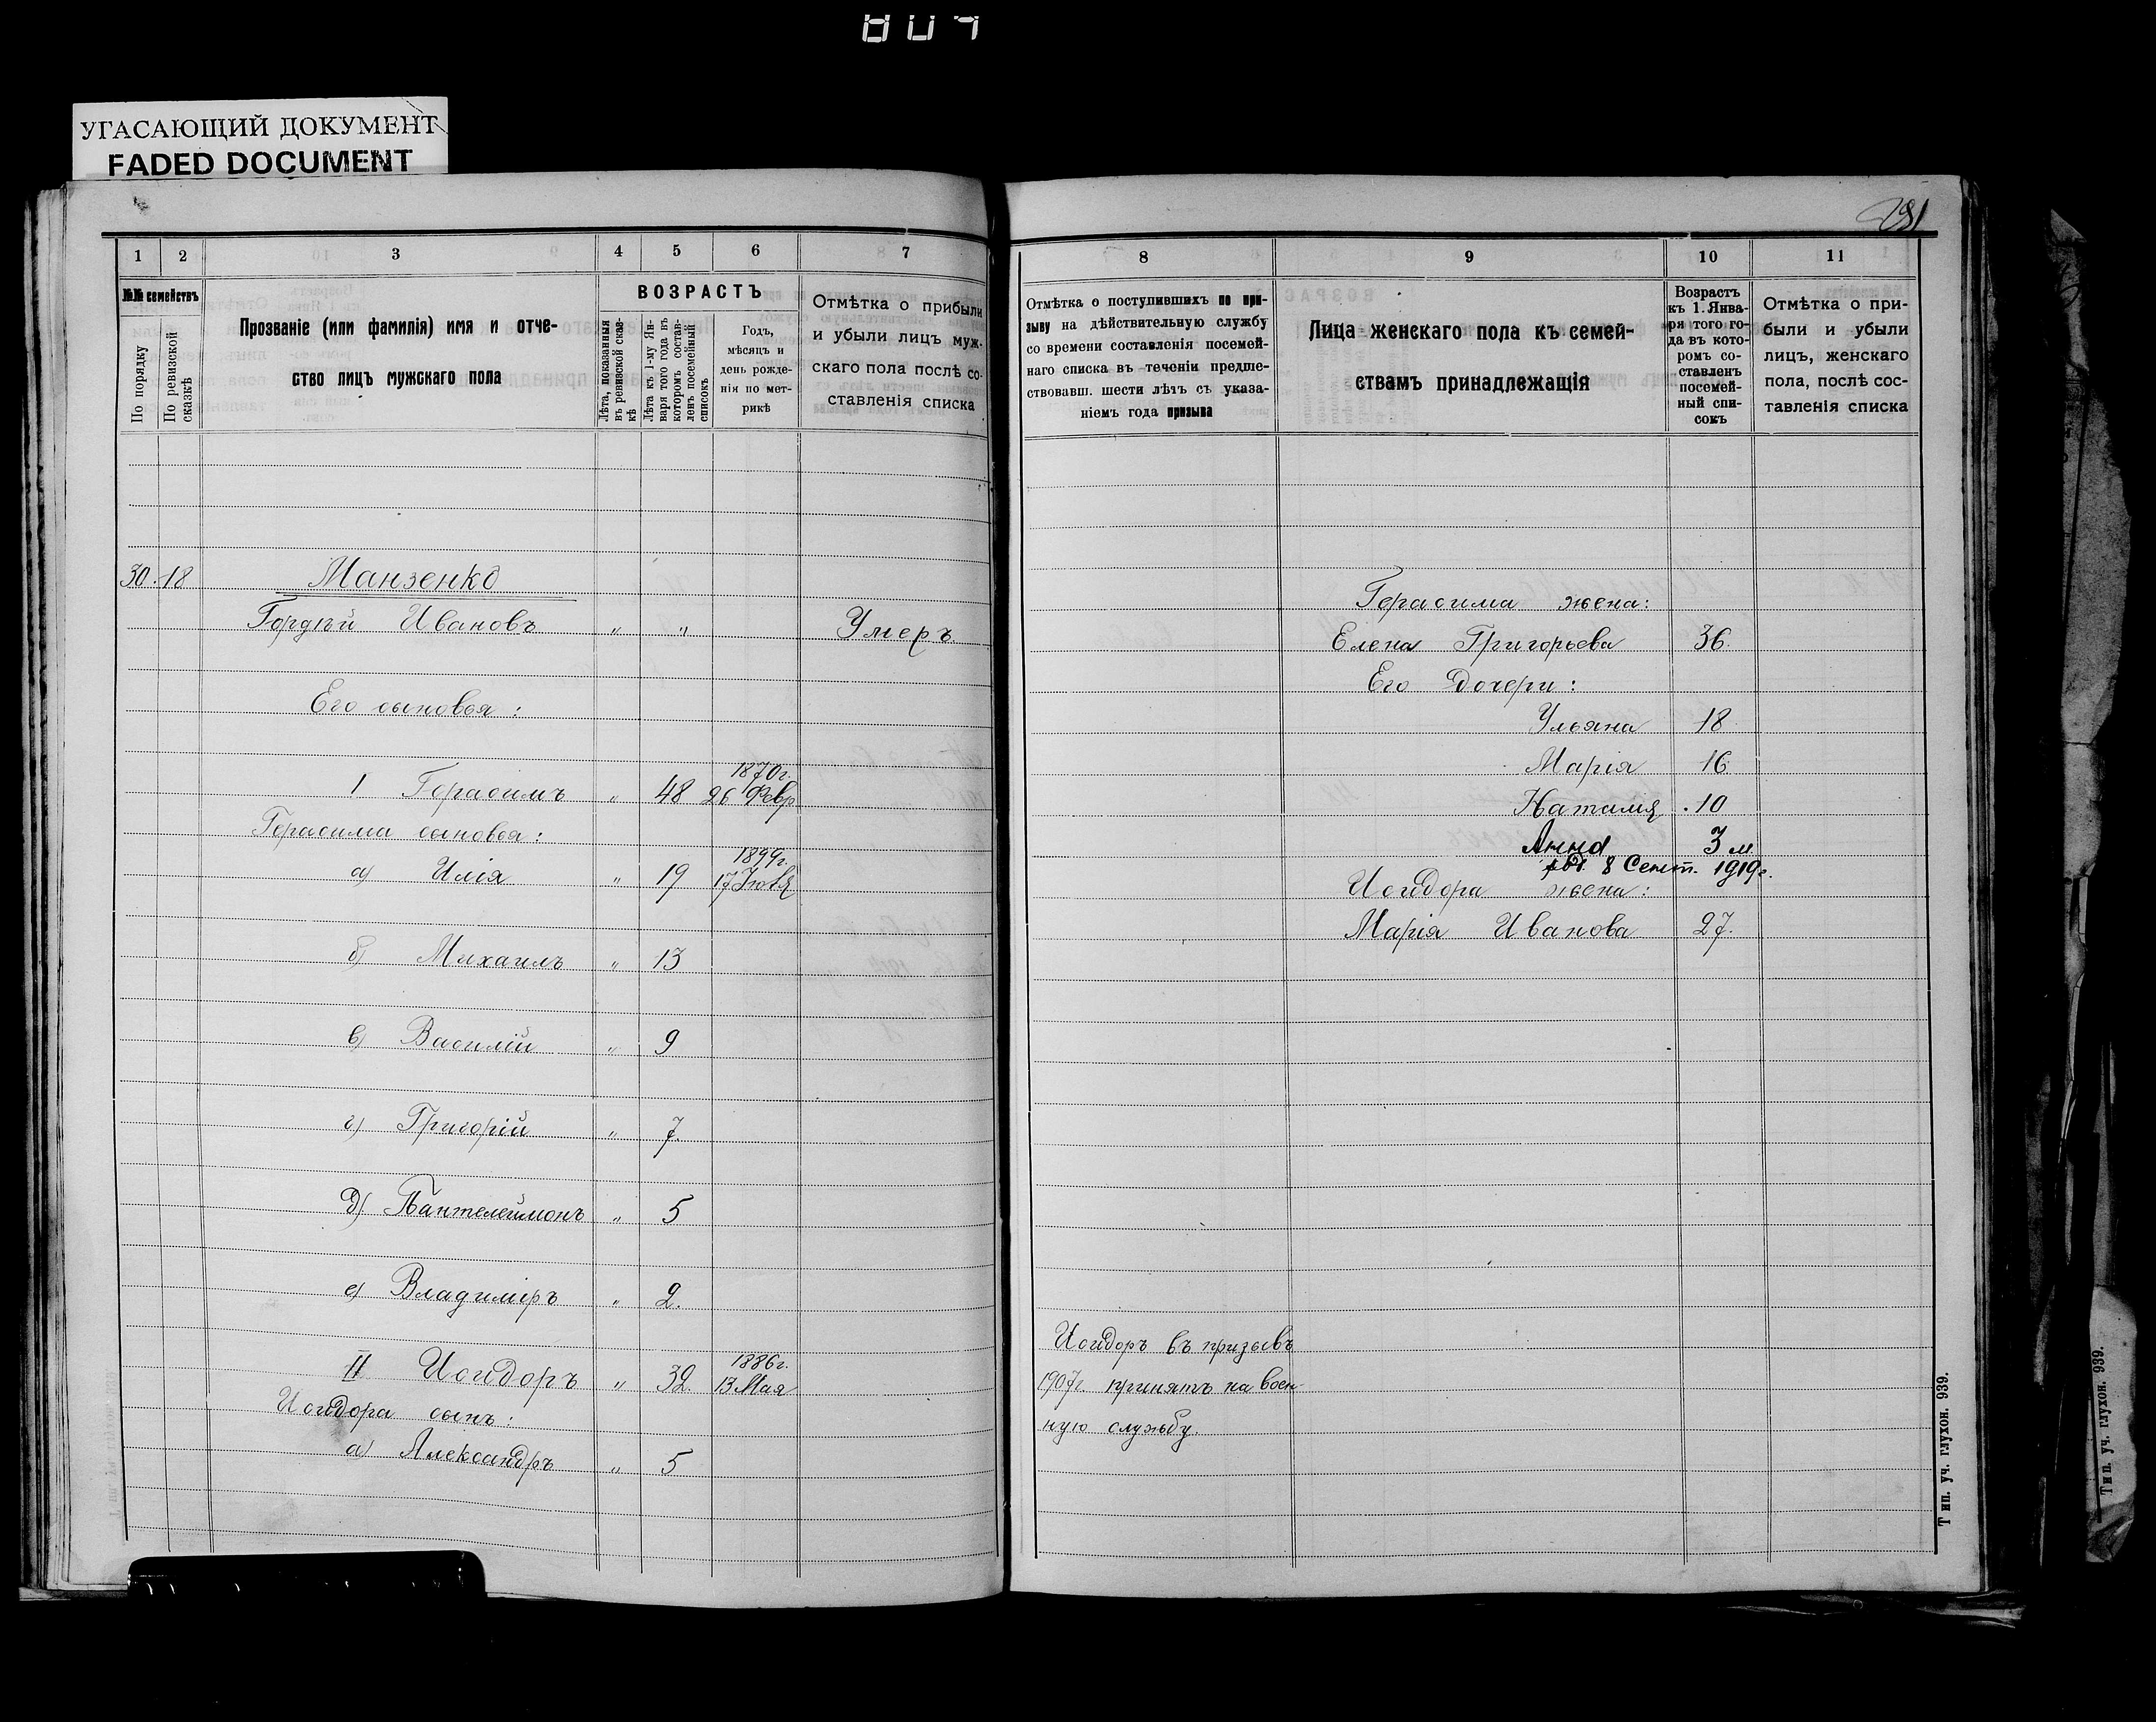 809
УГАСАЮЩИЙ ДОКУМЕНТ
FADED DOCUMENT
1 2 3 4 5 6 7
№№ семействъ
По порядку
По ревизской сказкѣ
Прозваніе (или фамилія) имя и отче-
ство лицъ мужскаго пола
ВОЗРАСТЪ
Лѣта, показанныя
въ ревизской сказ-
кѣ
Лѣта къ 1-му Ян-
варя того года въ
которомъ состав-
ленъ посемейный
списокъ
Годъ,
мѣсяцъ и
день рожде-
нія по мет-
рикѣ
Отмѣтка о прибыли
и убыли лицъ муж-
скаго пола послѣ со-
ставленія списка
30. 18 Манзенко
Гордѣй Ивановъ " " Умеръ.
Его сыновья:
1870г.
I Герасимъ " 48 26 Февр
Герасима сыновья:
1899г.
а) Илія " 19 17 Іюля
б) Михаилъ " 13
в) Василій " 9
г) Григорій " 7.
д) Пантелеймонъ " 5
е) Владиміръ " 2.
1886г.
II Исидоръ " 32. 13 Мая
Исидора сынъ:
а) Александръ " 5
8 9 10 11
Отмѣтка о поступившихъ по при-
зыву на дѣйствительную службу
со времени составленія посемей-
наго списка въ теченіи предше-
ствовавш. шести лѣтъ съ указа-
ніемъ года призыва
Лица женскаго пола къ семей-
ствамъ принадлежащія
Возрастъ
къ 1. Янва-
ря того го-
да въ кото-
ромъ со-
ставленъ
посемей-
ный спи-
сокъ
Отмѣтка о при-
были и убыли
лицъ, женскаго
пола, послѣ сос-
тавленія списка
Герасима жена:
Елена Григорьева 36.
Его дочери:
Ульяна 18
Марія 16.
Наталія 10
Анна 3 м
8 Сент. 1919г.
Исидора жена:
Марія Иванова 27.
Исидоръ въ призывъ
1907г. принятъ на воен-
ную службу.
Тип. уч. глухон. 939.
Тип. уч. глухон. 939.